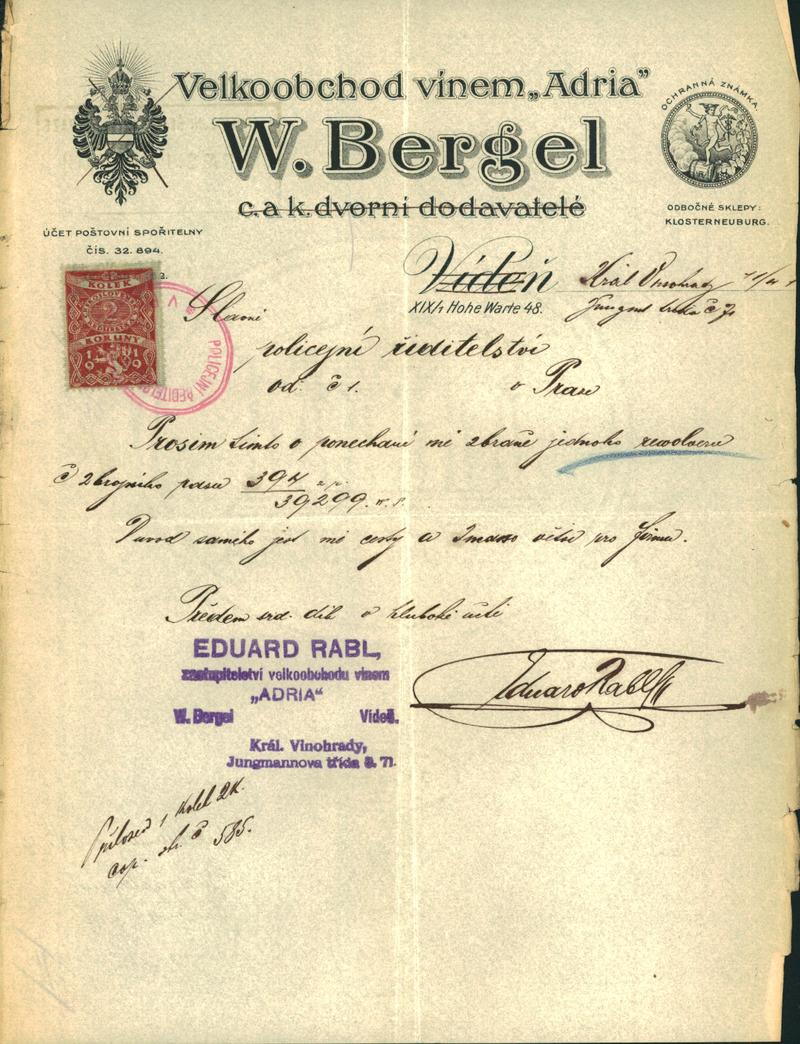 Velkoobchod vínem „Adria"
W. Bergel
c. a k. dvorní dodavatelé
OCHRANNÁ ZNÁMKA.
ODBOČNÉ SKLEPY:
KLOSTERNEUBURG.
ÚČET POŠTOVNÍ SPOŘITELNY
ČÍS. 32. 894.
Vídeň Král Vinohrady
XIX/1 Hohe Warte 48.
KOLEK
2
KORUNY
1919
POLICEJNÍ ŘEDITEL
Slavné
policejní ředitelství
od. č 1. v Praze
Prosím tímto o ponechání mé zbraně jednoho revolveru
č zbrojního pasu 394
39299
Důvod samého jest mé cesty a pro firmu.
Předem srd. dík v hluboké úctě
EDUARD RABL,
zastupitelství velkoobchodu vínem
„ADRIA"
W. Bergel Vídeň.
Král. Vinohrady,
Jungmannova třída č. 71.
Eduard Rabl
1 kolek 2K.
č 585.